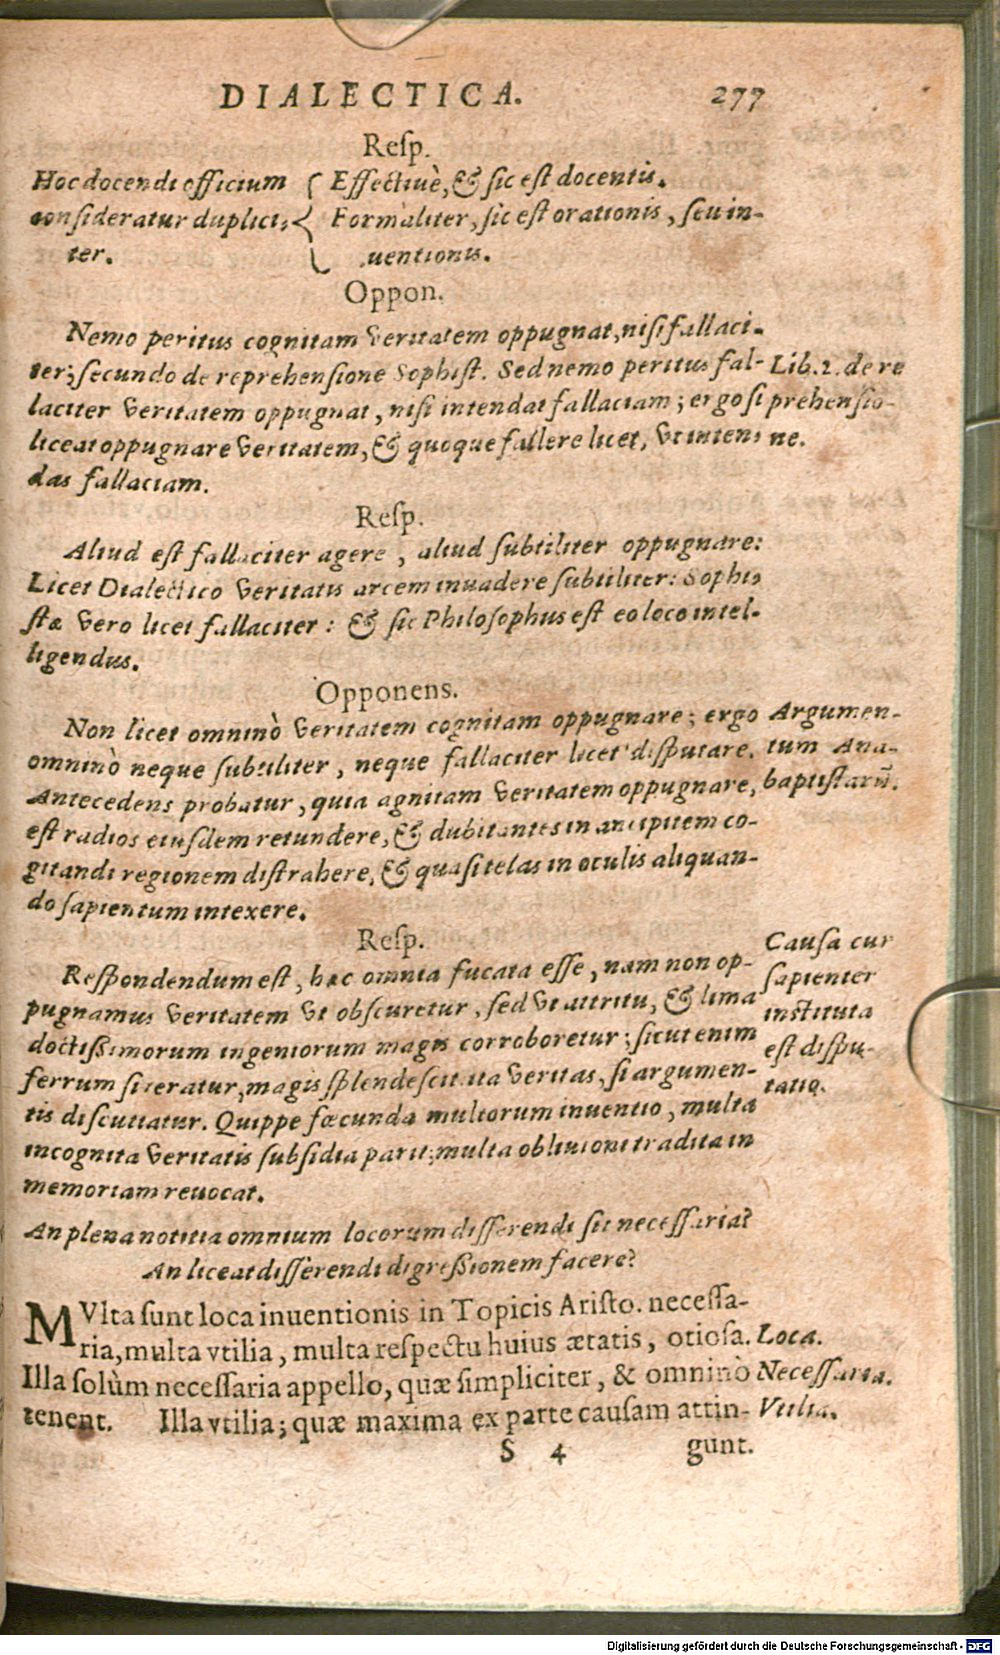 DIALECTICA. 277
Resp.
Hoc docendi officium { Effectiuè, & sic est docentis.
consideratur duplici- { Formaliter, sic est orationis, seu in-
ter. uentionis.
Oppon.
Nemo peritus cognitam veritatem oppugnat, nisi fallaci-
ter; secundo de reprehensione Sophist. Sed nemo peritus fal- Lib. 2. de re
laciter veritatem oppugnat, nisi intendat fallaciam; ergo si prehensio-
liceat oppugnare veritatem, & quoque fallere licet, vt inten- ne.
das fallaciam.
Resp.
Aliud est fallaciter agere, aliud subtiliter oppugnare:
Licet Dialectico veritatis arcem inuadere subtiliter: Sophi-
stæ vero licet fallaciter: & sic Philosophus est eo loco intel-
ligendus.
Opponens.
Non licet omninò veritatem cognitam oppugnare; ergo Argumen-
omninò neque subtiliter, neque fallaciter licet disputare. tum Ana-
Antecedens probatur, quia agnitam veritatem oppugnare, baptistarũ.
est radios eiusdem retundere, & dubitantes in ancipitem co-
gitandi regionem distrahere, & quasi telas in oculis aliquan-
do sapientum intexere.
Resp. Causa cur
Respondendum est, hæc omnia fucata esse, nam non op- sapienter
pugnamus veritatem vt obscuretur, sed vt attritu, & lima instituta
doctissimorum ingeniorum magis corroboretur; sicut enim est dispu-
ferrum si teratur, magis splendescit, ita veritas, si argumen- tatio.
tis discutiatur. Quippe fœcunda multorum inuentio, multa
incognita veritatis subsidia parit; multa obliuioni tradita in
memoriam reuocat.
An plena notitia omnium locorum differendi sit necessaria?
An liceat differendi digressionem facere?
MVlta sunt loca inuentionis in Topicis Aristo. necessa-
ria, multa vtilia, multa respectu huius ætatis, otiosa. Loca.
Illa solùm necessaria appello, quæ simpliciter, & omninò Necessaria.
tenent. Illa vtilia; quæ maxima ex parte causam attin- Vtilia.
S 4 gunt.
Digitalisierung gefördert durch die Deutsche Forschungsgemeinschaft - DFG